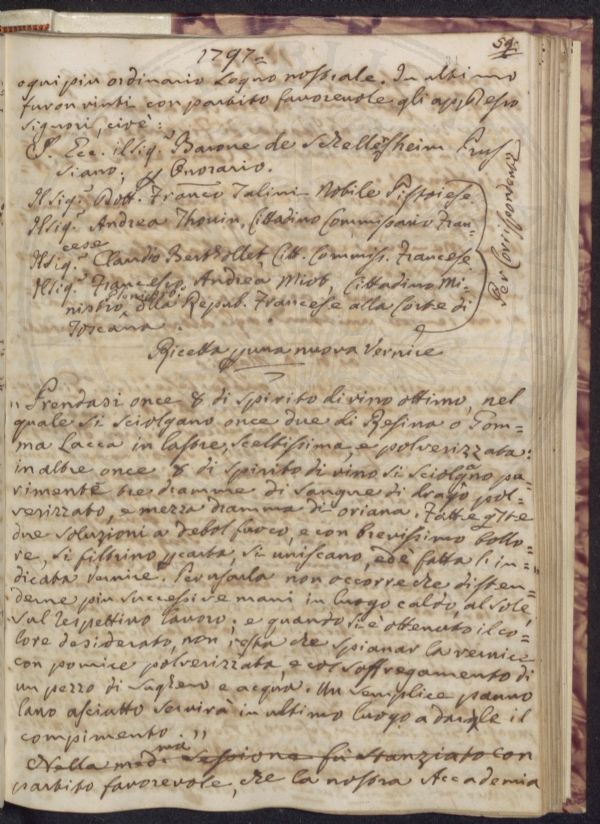 1797=
59.
ogni piu ordinario Legno nostrale. In ultimo
furon vinti con partito favorevole gli appresso
Signori, cioè:
S. Ecc. il Sig.r Barone de Schellersheim Prus
siano; p Onorario.
Il Sig.r Dott. Franco Talini Nobile Pistoiese
Il Sig.r Andrea Thouin, Cittadino Commissario Fran-
cese
Il Sig.r Claudio Berthollet, Citt. Commiss. Francese
Il Sig.r Francesco Andrea Miot, Cittadino Mi-
nistro della Repub. Francese alla Corte di
Toscana.
Per Corrispondenti
Ricetta p una nuova Vernice
„ Prendasi once 8 di Spirito di vino ottimo, nel
quale si sciolgano once due di Resina o Gom-
ma Lacca in lastre, sceltissima, e polverizzata:
in altre once 8 di Spirito di vino si sciolgano pa-
rimente tre dramme di Sangue di drago pol-
verizzato, e mezza dramma di oriana. Fatte q.ste
due soluzioni a debol fuoco, e con brevissimo bollo-
re, si filtrino p carta, si uniscano, ed è fatta l'in-
dicata vernice. Per usarla non occorre che disten-
derne più successive mani in luogo caldo, al sole,
sul respettivo lavoro; e quando si è ottenuto il co-
lore desiderato, non resta che spianar la vernice
con pomice polverizzata, e col soffregamento di
un pezzo di sughero e acqua. Un semplice panno
lano asciutto servirà in ultimo luogo a darle il
compimento. „
Nella med.ma Sessione fù stanziato con
partito favorevole, che la nostra Accademia